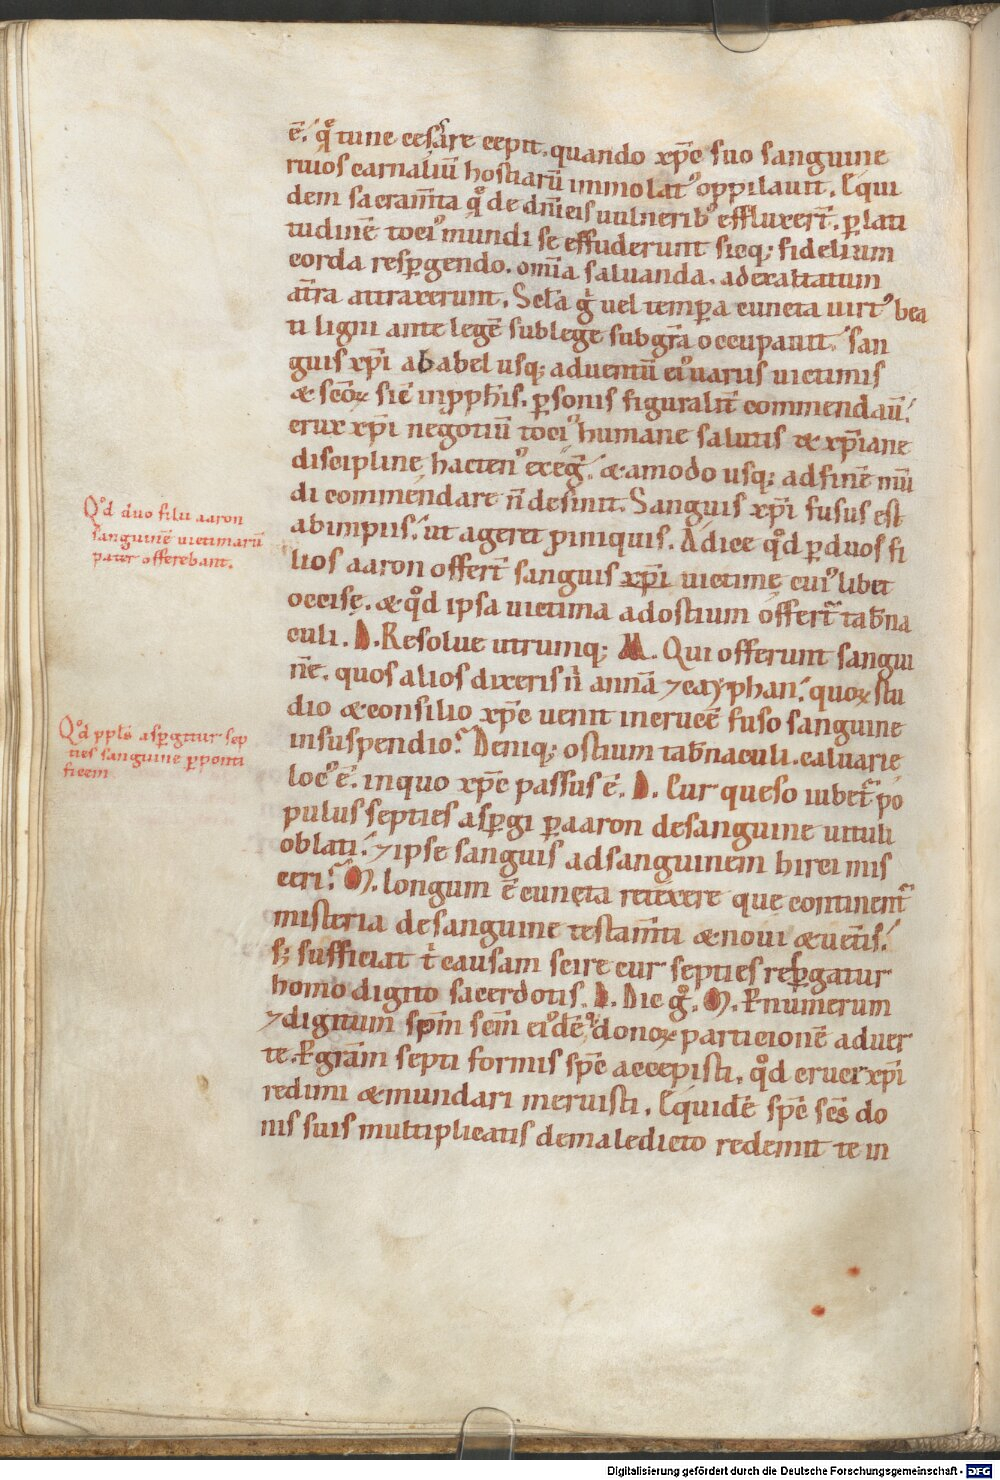 ē. qͦ tunc cessare cepit. quando xp̄c suo sanguine
riuos carnaliū hostiarū immolatꝰ oppilauit. Equi
dem sacram̄ta qͦ de dn̄icis uulneribꝰ effluxer̄t. ꝑ lati
tudinē tociꝰ mundi se effuderunt sicq; fidelium
corda resꝑgendo. om̄ia saluanda. ad exaltatum
at̄ra attraxerunt. Sc̄la gͥ uel temꝑa cuncta uirtꝰ bea
ti ligni ante legē sub lege sub gr̄a occupauit. san
guis xp̄i ab abel usq; aduentū eiꝰ uariis uictimis
& sc̄oꝝ sic̄ in ꝓph̄is. ꝑsonis figuralit̄ commendauī.
crux xp̄i negotiū tociꝰ humane salutis & xp̄iane
discipline hactenꝰ exeḡ. & amodo usq; ad finē mū
di commendare n̄ desinit. Sanguis xp̄i fusus est
ab impiis. ut ageret ꝓ iniquis. Adice qͦd ꝑ duos fi
lios aaron offert̄ sanguis xp̄i uictimę cuiꝰlibet
occisę. & qͦd ipsa uictima ad ostium offert̄ tab̄na
culi. D. Resolue utrumq; M. Qui offerunt sangui
nē. quos alios dixeris nͥ annā ⁊ cayphan. quoꝝ stu
dio & consilio xp̄c uenit in crucē fuso sanguine
in suspendio. Deniq; ostium tab̄naculi. caluarie
locꝰ ē. in quo xp̄c passus ē. D. Cur queso iubet̄ po
pulus septies asꝑgi ꝑ aaron de sanguine uituli
oblati. ⁊ ipse sanguis ad sanguinem hirci mis
ceri. M. longum ē cuncta retexere que continent̄
misteria de sanguine testam̄ti & noui & uet̄is.
s; sufficiat tͥ causam scire cur septies resꝑgatur
homo digito sacerdotis. D. Dic gͦ. M. P̄ numerum
⁊ digitum sp̄m sc̄m eiꝰdē qͣ donoꝝ particionē aduer
te. P̄ gr̄am septiformis sp̄c accepisti. qͦd cruce xp̄i
redimi & mundari meruisti. Equidē sp̄c sc̄s do
nis suis multiplicatis de maledicto redemit te in
Qͦd duo filii aaron
sanguinē uictimarū
pater offerebant.
Qͦd ppl̄s asꝑgitur sep
ties sanguine ꝑ ponti
ficem
Digitalisierung gefördert durch die Deutsche Forschungsgemeinschaft - DFG